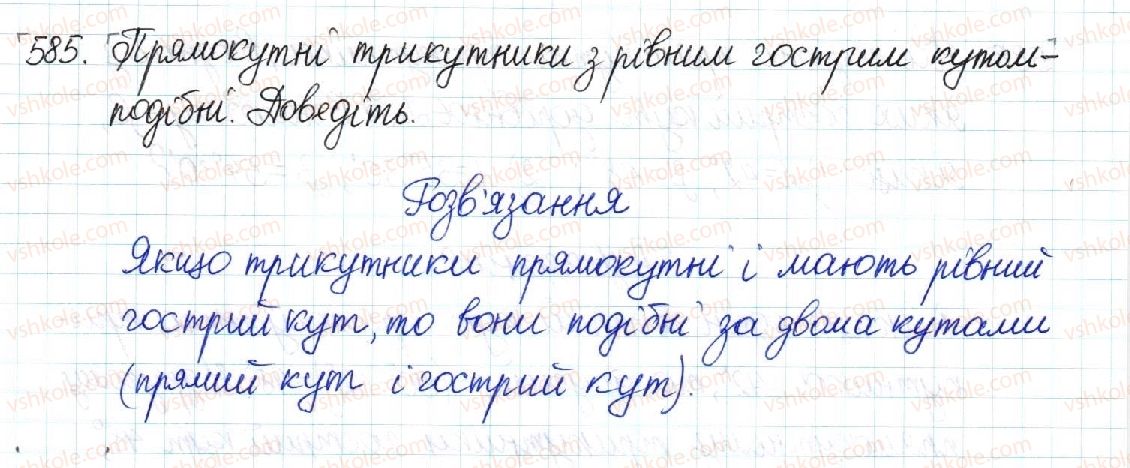 585. Прямокутні трикутники з рівним гострим кутом-
подібні. Доведіть.
Розв'язання
Якщо трикутники прямокутні і мають рівний
гострий кут, то вони подібні за двома кутами
(прямий кут і гострий кут).